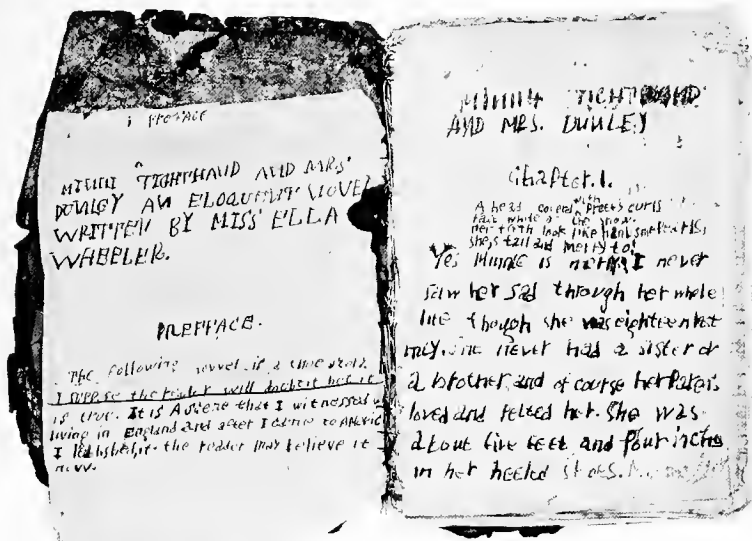 PREFACE
MINNIE TIGHTHAND AND MRS
DUNLEY AN ELOQUENT NOVEL
WRITTEN BY MISS ELLA
WHEELER.
PREFFACE.
The following novel is a true story
I suppose the reader will doubt it but it
is true. It is A scene that I witnessed
living in England and after I came to
I published it. the reader may believe it
now.
MINNIE TIGHTHAND
AND MRS. DUNLEY
Chapter.1.
A head covered with pretty curls
face white as the snow
her teeth look like handsome pearls,
she,s tall and merry to!
Yes Minnie is merry I never
saw her sad through her whole
life though she was eighteen but
never had a sister or
a brother, and of course her
loved and petted her. She was
about five feet and four inches
in her heeled shoes.